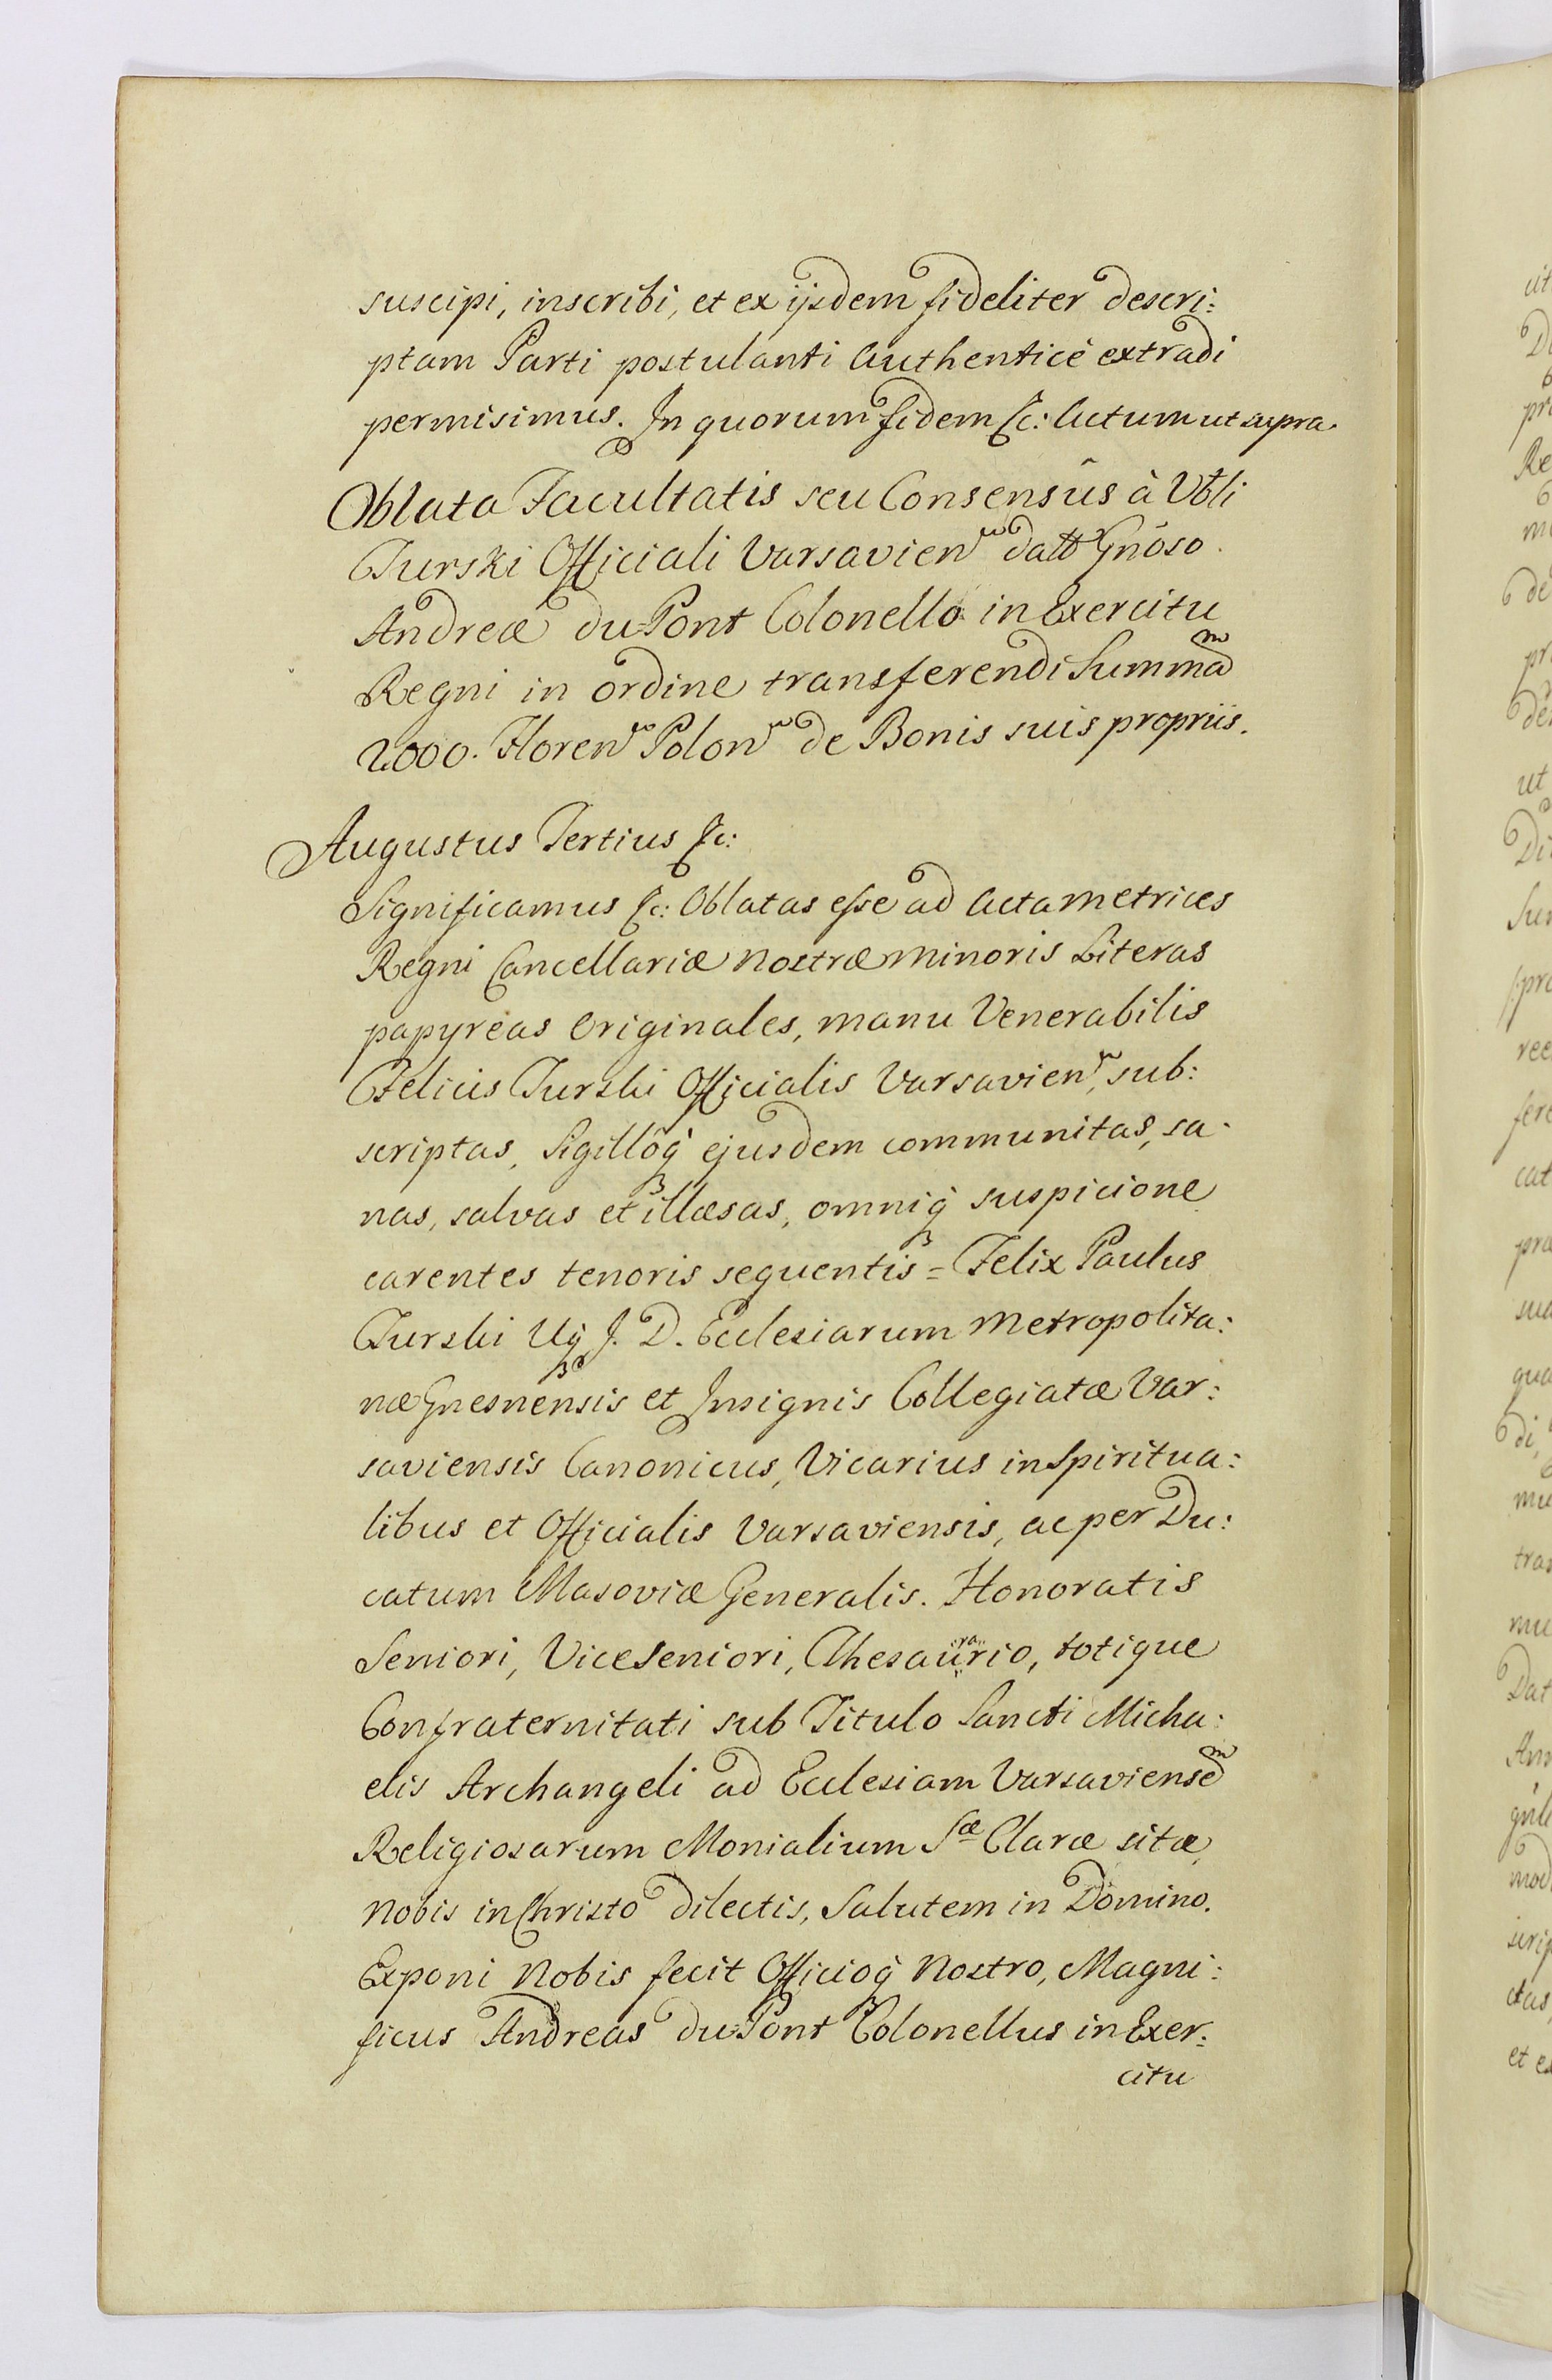 suscipi, inscribi, et ex ijsdem fideliter descri:
ptam Parti postulanti Authenticè extradi
permisimus. In quorum fidem &c: Actum ut supra
Oblata Facultatis seu Consensûs à Vbli
Turski Officiali Varsavien dat Gnoso
Andreæ du Pont Colonello in Exercitu
Regni in ordine transferendi Summam
2000. Floren Polon de Bonis suis propriis.
Augustus Tertius &c:
Significamus &c: Oblatas esse ad Acta Metrices
Regni Cancellariæ Nostræ Minoris Literas
papyreas Originales, manu Venerabilis
Felicis Turski Officialis Varsavien, sub:
scriptas, Sigilloq́ ejusdem communitas, sa:
nas, salvas et illæsas, omniq́ suspicione
carentes tenoris sequentis = Felix Paulus
Turski Uq́ J. D. Ecclesiarum Metropolita:
næ Gnesnensis et Insignis Collegiatæ Var:
saviensis Canonicus, Vicarius in Spiritua:
libus et Officialis Varsaviensis, ac per Du:
catum Masoviæ Generalis. Honoratis
Seniori, Viceseniori, Thesaurario, totique
Confraternitati sub Titulo Sancti Micha:
elis Archangeli ad Ecclesiam Varsaviensem
Religiosarum Monialium Sæ Claræ sitæ,
Nobis in Christo dilectis, Salutem in Domino.
Exponi Nobis fecit Officioq́ Nostro, Magni:
ficus Andreas du Pont Colonellus in Exer:
citu